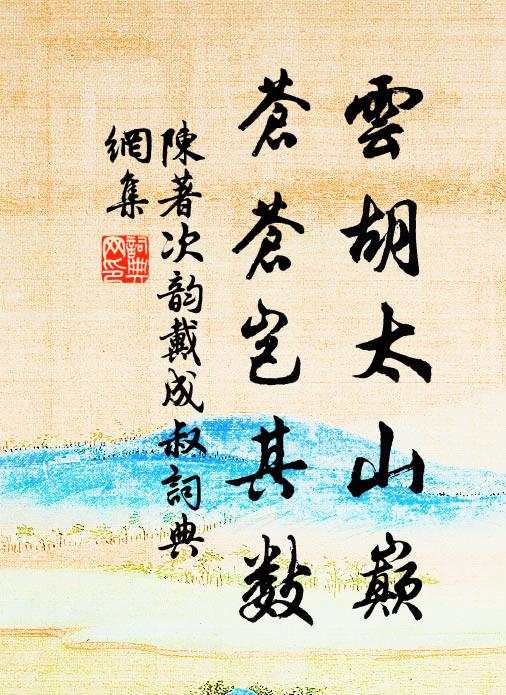 雲胡太山巔
蒼蒼豈其數
陳著次韵戴成叔詞典
網集
詞典網印